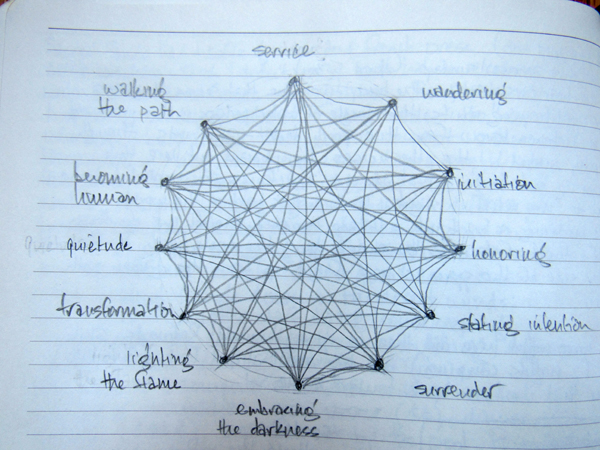 service
wandering
initiation
honoring
stating intention
surrender
embracing
the darkness
lighting
the flame
transformation
quietude
becoming
human
walking
the path